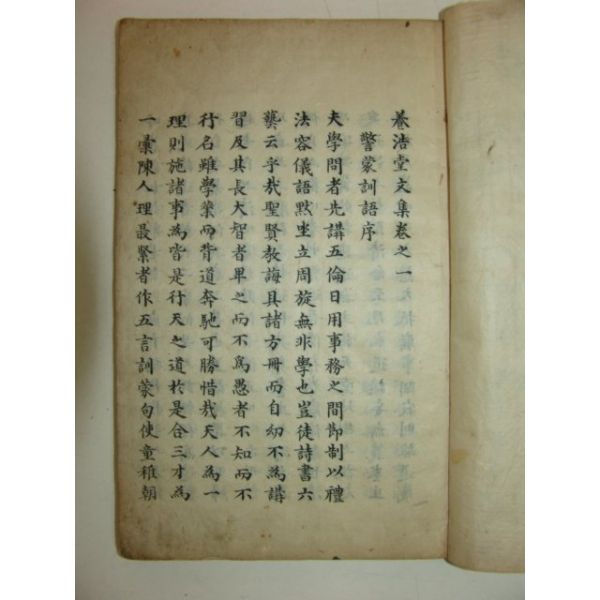 養浩堂文集卷之一
警蒙訓語序
夫學問者先講五倫日用事務之間卽制以禮
法容儀語默坐立周旋無非學也豈徒詩書六
藝云乎哉聖賢教誨具諸方冊而自幼不爲講
習及其長大智者卑之而不爲愚者不知而不
行名雖學業而背道奔馳可勝惜哉天人爲一
理則施諸事爲皆是行天之道於是合三才爲
一彙陳人理最緊者作五言訓蒙句使童稚朝